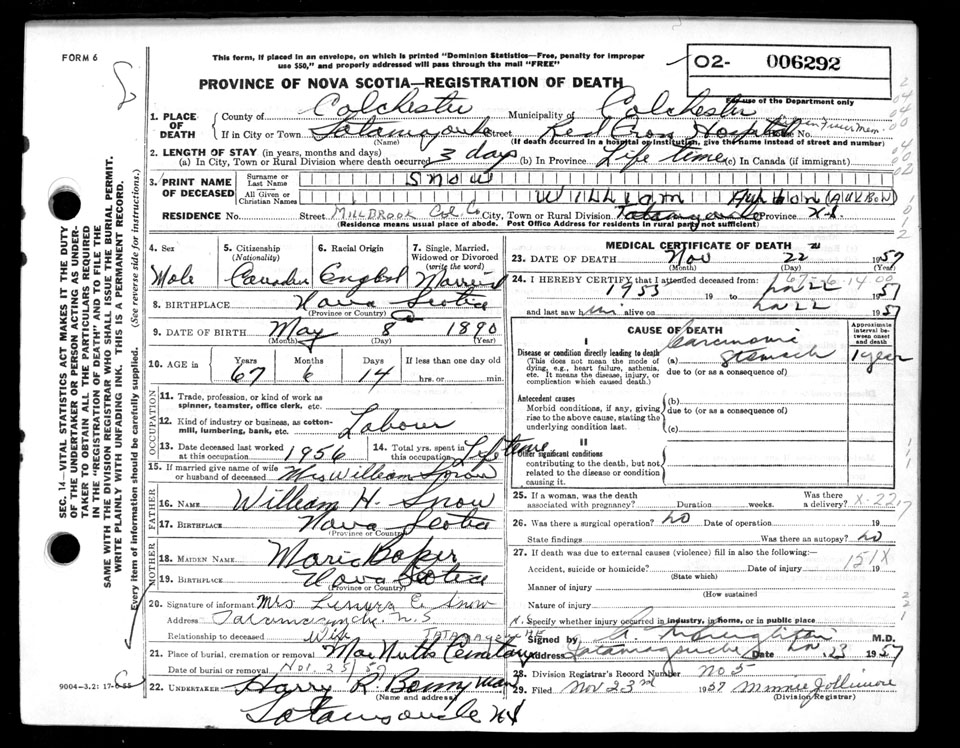 FORM 6
This form, if placed in an envelope, on which is printed "Dominion Statistics—Free, penalty for improper
use $50," and properly addressed will pass through the mail "FREE"
O2- 006292
For use of the Department only
PROVINCE OF NOVA SCOTIA—REGISTRATION OF DEATH
1. PLACE OF DEATH County of Colchester Municipality of Colchester
If in City or Town Tatamagouche Street Red Cross Hospital No.
(Name) (If death occurred in a hospital or institution, give the name instead of street and number)
2. LENGTH OF STAY (in years, months and days)
(a) In City, Town or Rural Division where death occurred 3 days (b) In Province Life time (c) In Canada (if immigrant)
3. PRINT NAME OF DECEASED Surname or Last Name Snow
All Given or Christian Names William Auhbon (AUKBON)
RESIDENCE No. Street MILLBROOK Col. Co City, Town or Rural Division Tatamagouche Province N.S.
(Residence means usual place of abode. Post Office Address for residents in rural parts not sufficient)
4. Sex Male
5. Citizenship (Nationality) Canadian
6. Racial Origin English
7. Single, Married, Widowed or Divorced (write the word) Married
8. BIRTHPLACE Nova Scotia
(Province or Country)
9. DATE OF BIRTH May 8 1890
(Month) (Day) (Year)
10. AGE Years Months Days If less than one day old
67 6 14 hrs. or min.
OCCUPATION
11. Trade, profession, or kind of work as spinner, teamster, office clerk, etc.
12. Kind of industry or business, as cotton-mill, lumbering, bank, etc. Labour
13. Date deceased last worked at this occupation 1956
14. Total yrs. spent in this occupation Life time
15. If married give name of wife or husband of deceased Mrs William Snow
FATHER
16. NAME William H. Snow
17. BIRTHPLACE Nova Scotia
(Province or Country)
MOTHER
18. MAIDEN NAME Marie Baker
19. BIRTHPLACE Nova Scotia
(Province or Country)
20. Signature of informant Mrs E. Snow
Address Tatamagouche N.S.
Relationship to deceased Wife TATAMAGOUCHE
21. Place of burial, cremation or removal MacNutts Cemetary
Date of burial or removal Nov. 25/57
22. UNDERTAKER Harry R Bonnyman
(Name and address)
Tatamagouche NS
9004—3.2: 17-6-55
MEDICAL CERTIFICATE OF DEATH
23. DATE OF DEATH Nov 22 1957
(Month) (Day) (Year)
24. I HEREBY CERTIFY that I attended deceased from:
1955 19 to Nov 22 1957
and last saw him alive on Nov 22 1957
CAUSE OF DEATH
Approximate interval between onset and death
I
Disease or condition directly leading to death
(This does not mean the mode of dying, e.g., heart failure, asthenia, etc. It means the disease, injury, or complication which caused death.)
(a) Carcinoma stomach 1 year
due to (or as a consequence of)
Antecedent causes
Morbid conditions, if any, giving rise to the above cause, stating the underlying condition last.
(b)
due to (or as a consequence of)
(c)
II
Other significant conditions
contributing to the death, but not related to the disease or condition causing it.
25. If a woman, was the death associated with pregnancy? Duration weeks. Was there a delivery? X-22
26. Was there a surgical operation? no Date of operation 19
State findings Was there an autopsy? no
27. If death was due to external causes (violence) fill in also the following:—
Accident, suicide or homicide? Date of injury 19
(State which)
151X
Manner of injury
(How sustained)
Nature of injury
Specify whether injury occurred in industry, in home, or in public place
Signed by M.D.
Address Tatamagouche Date Nov 23 1957
28. Division Registrar's Record Number No 5
29. Filed Nov 23rd 1957 Minnie Jollimore
(Division Registrar)
SEC. 14—VITAL STATISTICS ACT MAKES IT THE DUTY
OF THE UNDERTAKER OR PERSON ACTING AS UNDER-
TAKER TO OBTAIN ALL THE PARTICULARS REQUIRED
IN THE "REGISTRATION OF DEATH" AND TO FILE THE
SAME WITH THE DIVISION REGISTRAR WHO SHALL ISSUE THE BURIAL PERMIT.
WRITE PLAINLY WITH UNFADING INK. THIS IS A PERMANENT RECORD.
Every item of information should be carefully supplied. (See reverse side for instructions.)